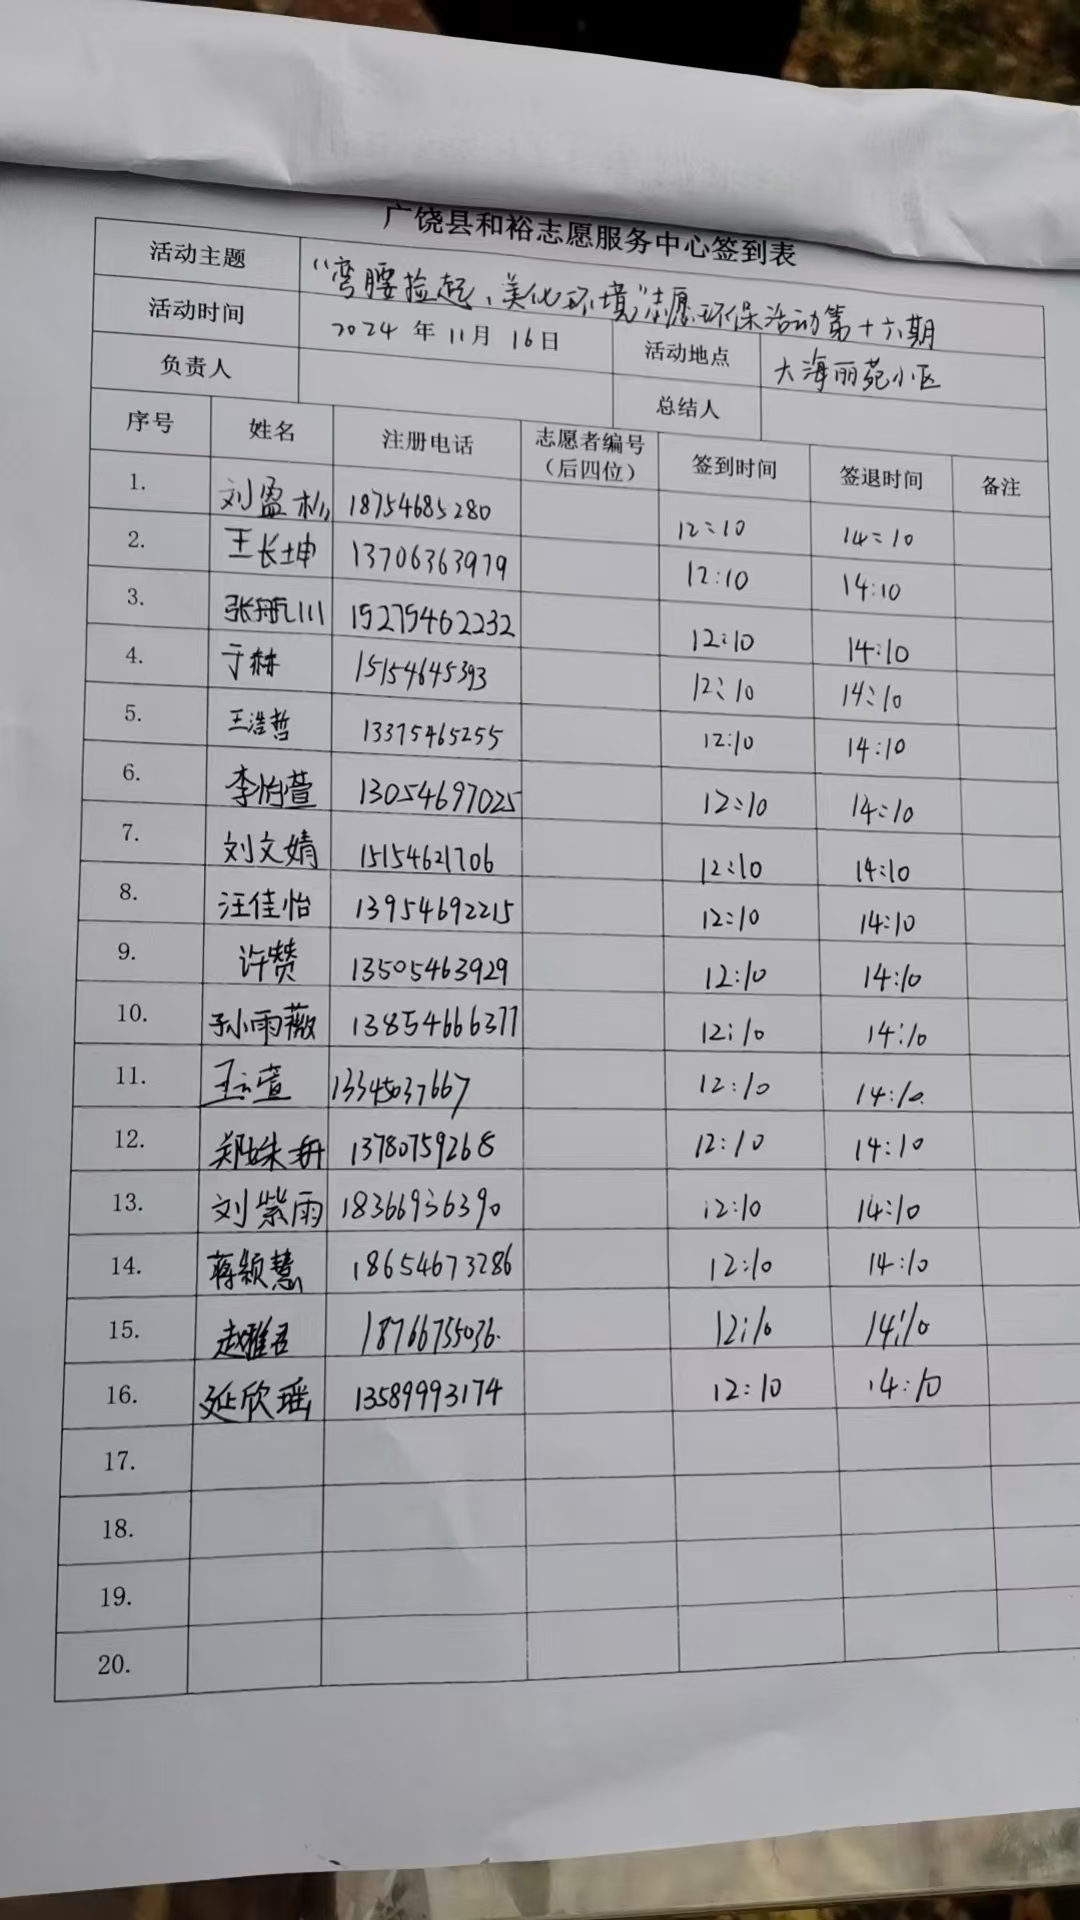 广饶县和裕志愿服务中心签到表
活动主题 “弯腰捡起、美化环境”志愿环保活动第十六期
活动时间 2024 年 11月 16日 活动地点 大海丽苑小区
负责人 总结人
序号 姓名 注册电话 志愿者编号（后四位） 签到时间 签退时间 备注
1. 刘盈杉 18754685280 12:10 14:10
2. 王长坤 13706363979 12:10 14:10
3. 张航川 15275462232 12:10 14:10
4. 于赫 15154645393 12:10 14:10
5. 王浩哲 13375465255 12:10 14:10
6. 李怡萱 13054697025 12:10 14:10
7. 刘文婧 15154621706 12:10 14:10
8. 汪佳怡 13954692215 12:10 14:10
9. 许赞 13505463929 12:10 14:10
10. 孙雨薇 13854666377 12:10 14:10
11. 王云萱 13345037667 12:10 14:10
12. 郑姝冉 13780759268 12:10 14:10
13. 刘紫雨 18366936390 12:10 14:10
14. 蒋颖慧 18654673286 12:10 14:10
15. 赵雅君 18766755036 12:10 14:10
16. 延欣瑶 13589993174 12:10 14:10
17.
18.
19.
20.